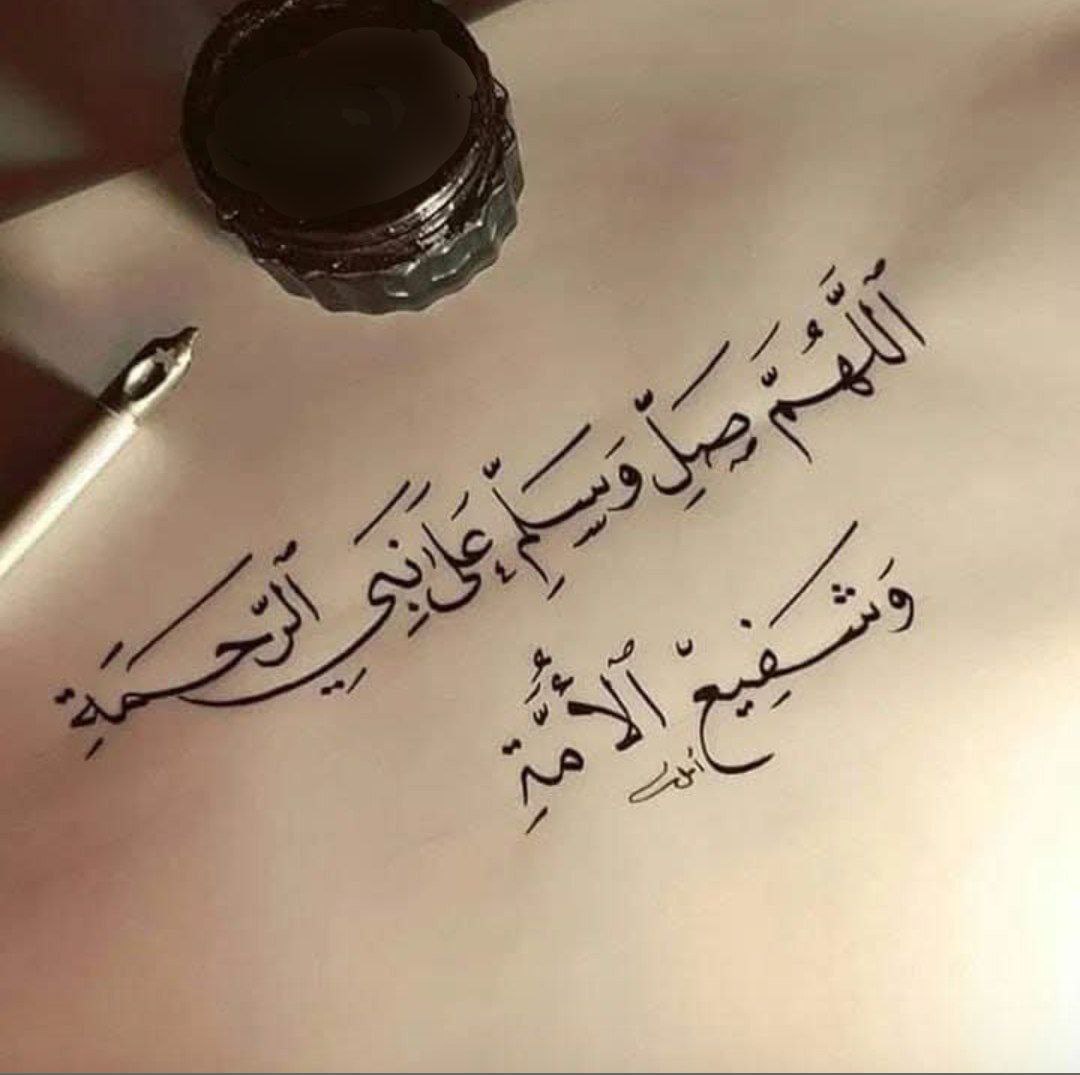 ٱللَّهُمَّ صَلِّ وَسَلِّمْ عَلَىٰ نَبِيِ ٱلرَّحمَةِ
وَشَفِيعِ ٱلأُمَّةِ